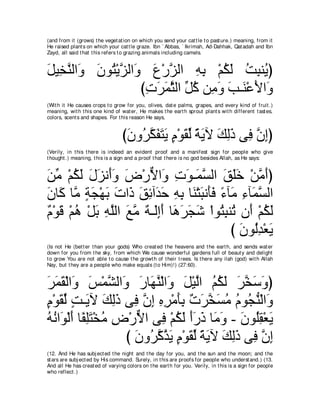 (and from it (grows) the vegetation on which you send your cattle to pasture.) meaning, from it
He raised plants on which your cattle graze. Ibn `Abbas, `Ikrimah, Ad-Dahhak, Qatadah and Ibn
Zayd, all said that this refers to grazing animals including camels.
(يُنبِتُ لَكُمْ بِهِ الزَّرْعَ وَالزَّيْتُونَ وَالنَّخِيلَ
وَالأْعْنَـبَ وَمِن كُلِّ الثَّمَرَتِ)
(With it He causes crops to grow for you, olives, date palms, grapes, and every kind of fruit.)
meaning, with this one kind of water, He makes the earth sprout plants with different tastes,
colors, scents and shapes. For this reason He says,
(إِنَّ فِى ذَلِكَ لآيَةً لِّقَوْمٍ يَتَفَكَّرُونَ)
(Verily, in this there is indeed an evident proof and a manifest sign for people who give
thought.) meaning, this is a sign and a proof that there is no god besides Allah, as He says:
(أَمَّنْ خَلَقَ السَّمَـوَتِ وَالأَرْضَ وَأَنزَلَ لَكُمْ مِّنَ
السَّمَآءِ مَآءً فَأَنبَتْنَا بِهِ حَدَآئِقَ ذَاتَ بَهْجَةٍ مَّا كَانَ
لَكُمْ أَن تُنبِتُواْ شَجَرَهَا أَءِلـهٌ مَّعَ اللَّهِ بَلْ هُمْ قَوْمٌ
يَعْدِلُونَ )
(Is not He (better than your gods) Who created the heavens and the earth, and sends water
down for you from the sky, from which We cause wonderful gardens full of beauty and delight
to grow You are not able to cause the growth of their trees. Is there any ilah (god) with Allah
Nay, but they are a people who make equals (to Him)!) (27:60).
(وَسَخَّرَ لَكُمُ الَّيْلَ وَالنَّهَارَ وَالشَّمْسَ وَالْقَمَرَ
وَالنُّجُومُ مُسَخَّرَتٌ بِأَمْرِهِ إِنَّ فِى ذَلِكَ لآيَـتٍ لِّقَوْمٍ
يَعْقِلُونَ - وَمَا ذَرَأَ لَكُمْ فِى الأَرْضِ مُخْتَلِفًا أَلْوَانُهُ
إِنَّ فِى ذَلِكَ لآيَةً لِّقَوْمٍ يَذَّكَّرُونَ )
(12. And He has subjected the night and the day for you, and the sun and the moon; and the
stars are subjected by His command. Surely, in this are proofs for people who understand.) (13.
And all He has created of varying colors on the earth for you. Verily, in this is a sign for people
who reflect.)